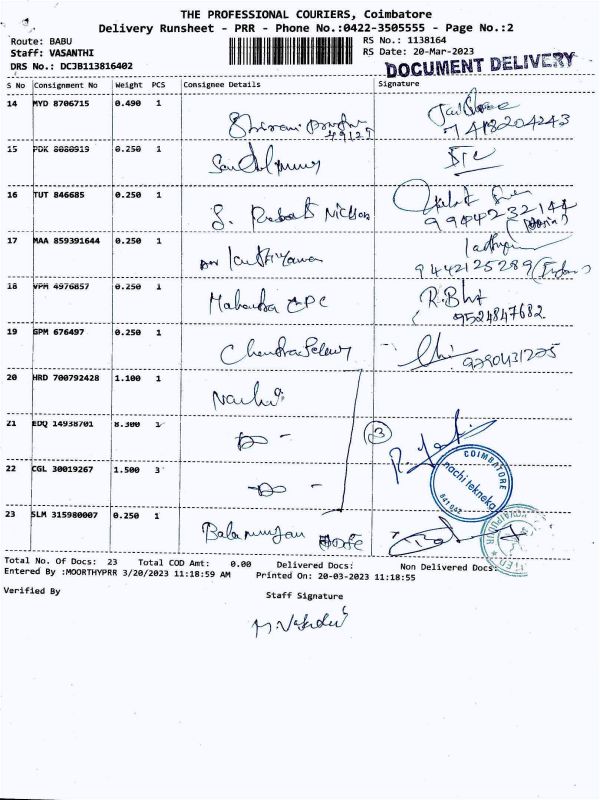 THE PROFESSIONAL COURIERS, Coimbatore
Delivery Runsheet - PRR - Phone No.:0422-3505555 - Page No.:2
Route: BABU
RS No.: 1138164
Staff: VASANTHI
RS Date: 20-Mar-2023
DRS No.: DCJB113816402
DOCUMENT DELIVERY
S No Consignment No Weight PCS Consignee Details Signature
14 MYD 8706715 0.490 1
7418204243
15 PDK 8080919 0.250 1
16 TUT 846685 0.250 1
S.
9944232144
17 MAA 859391644 0.250 1
9442125289
18 VPM 4976857 0.250 1 Mahendra EPC R.Bht
9524847682
19 GPM 676497 0.250 1
9290431225
20 HRD 700792428 1.100 1
21 EDQ 14938701 8.300 1 3
22 CGL 30019267 1.500 3
COIMBATORE
nachi tekneka
23 SLM 315980007 0.250 1 Balamurugan
Total No. Of Docs: 23 Total COD Amt: 0.00 Delivered Docs: Non Delivered Docs:
Entered By :MOORTHYPRR 3/20/2023 11:18:59 AM Printed On: 20-03-2023 11:18:55
Verified By
Staff Signature